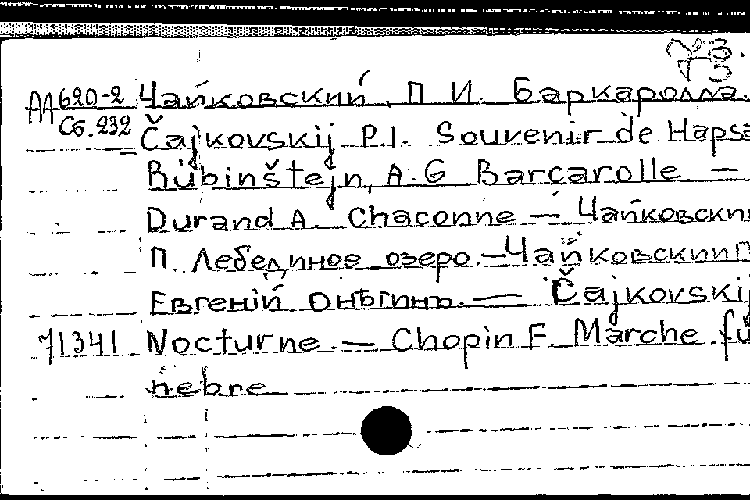 3.
АА 620-2 Чайковский, П. И. Баркаролла.
Сб. 232 Čajkovskij P.I. Souvenir de Hapsa
Rubinštejn, A. G Barcarolle —
Durand A. Chaconne — Чайковски
П. Лебединое озеро. — Чайковский П
Евгеній Онѣгинъ. — Čajkovskij
71341 Nocturne. — Chopin F. Marche fu
nebre